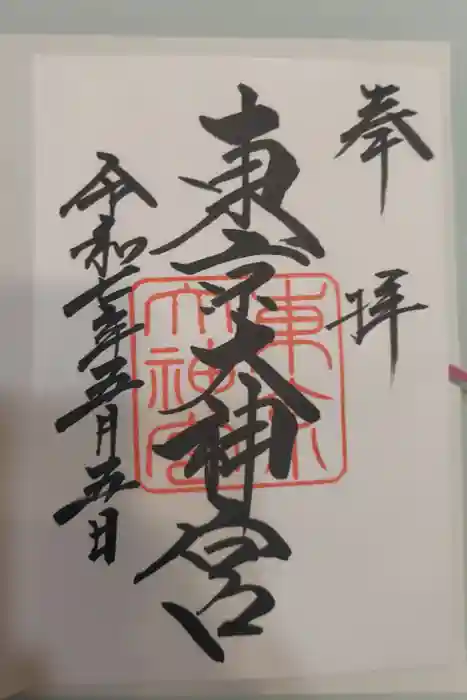 奉拝
東京大神宮
令和七年五月五日
東京大神宮